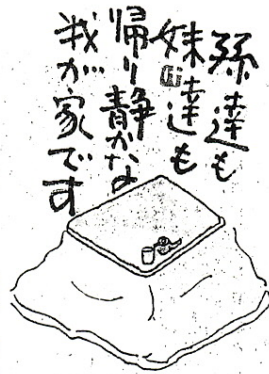 孫達も
妹達も
帰り静かな
我が家です